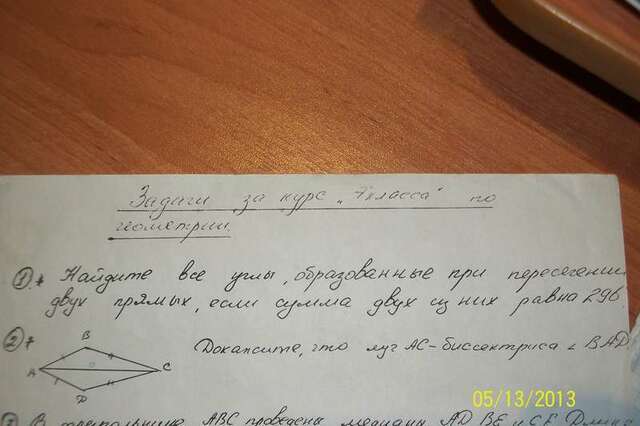 Задачи за курс „7класса“ по
геометрии.
1.* Найдите все углы, образованные при пересечении
двух прямых, если сумма двух из них равна 296
2* Докажите, что луч AC-биссектриса ∠ BAD
B
A
C
D
ABC проведены медианы AD, BE и CF. Длина
05/13/2013